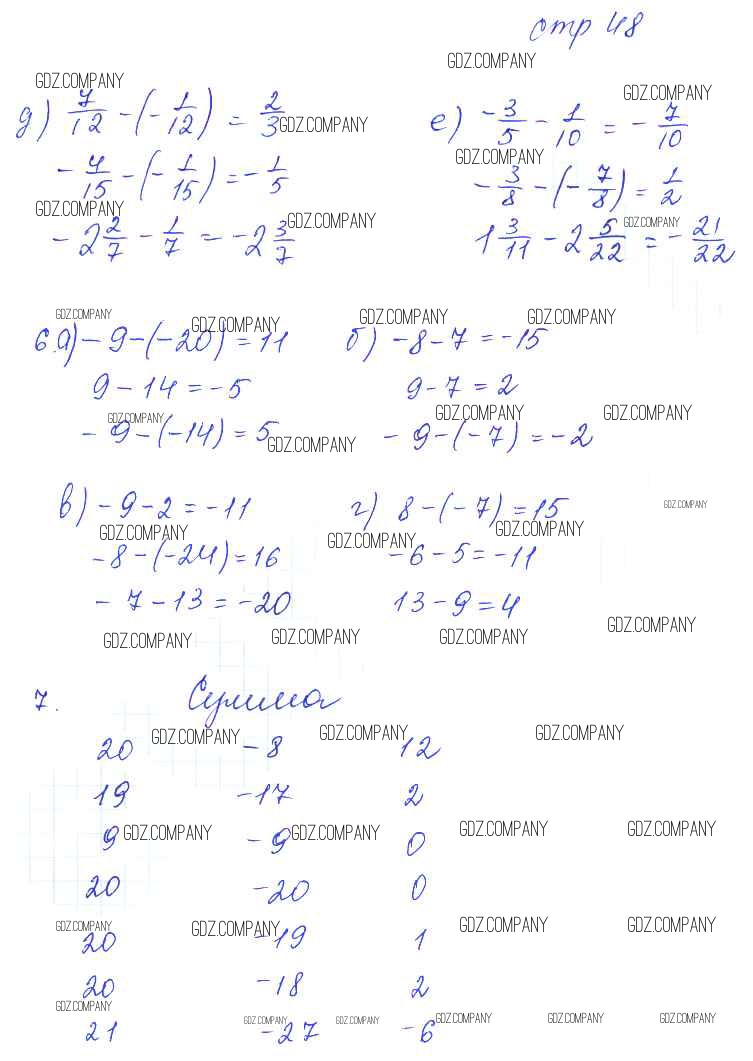 стр 48
GDZ.COMPANY
GDZ.COMPANY
GDZ.COMPANY
д) 7/12 - (- 1/12) = 2/3 GDZ.COMPANY
е) -3/5 - 1/10 = - 7/10
GDZ.COMPANY
- 4/15 - (- 1/15) = - 1/5
- 3/8 - (- 7/8) = 1/2
GDZ.COMPANY
GDZ.COMPANY
GDZ.COMPANY
- 2 2/7 - 1/7 = -2 3/7
1 3/11 - 2 5/22 = - 21/22
GDZ.COMPANY
GDZ.COMPANY
GDZ.COMPANY
GDZ.COMPANY
6.а) - 9 - (-20) = 11
б) -8 - 7 = -15
9 - 14 = -5
9 - 7 = 2
GDZ.COMPANY
GDZ.COMPANY
GDZ.COMPANY
- 9 - (-14) = 5
GDZ.COMPANY
- 9 - (-7) = -2
в) -9 - 2 = -11
г) 8 - (-7) = 15
GDZ.COMPANY
GDZ.COMPANY
GDZ.COMPANY
GDZ.COMPANY
-8 - (-24) = 16
-6 - 5 = -11
- 7 - 13 = -20
13 - 9 = 4
GDZ.COMPANY
GDZ.COMPANY
GDZ.COMPANY
GDZ.COMPANY
7. Сумма
GDZ.COMPANY
GDZ.COMPANY
GDZ.COMPANY
20 -8 12
19 -17 2
9 GDZ.COMPANY -9 GDZ.COMPANY 0 GDZ.COMPANY GDZ.COMPANY
20 -20 0
GDZ.COMPANY GDZ.COMPANY GDZ.COMPANY GDZ.COMPANY
20 -19 1
20 -18 2
GDZ.COMPANY
GDZ.COMPANY GDZ.COMPANY GDZ.COMPANY GDZ.COMPANY GDZ.COMPANY
21 -27 -6